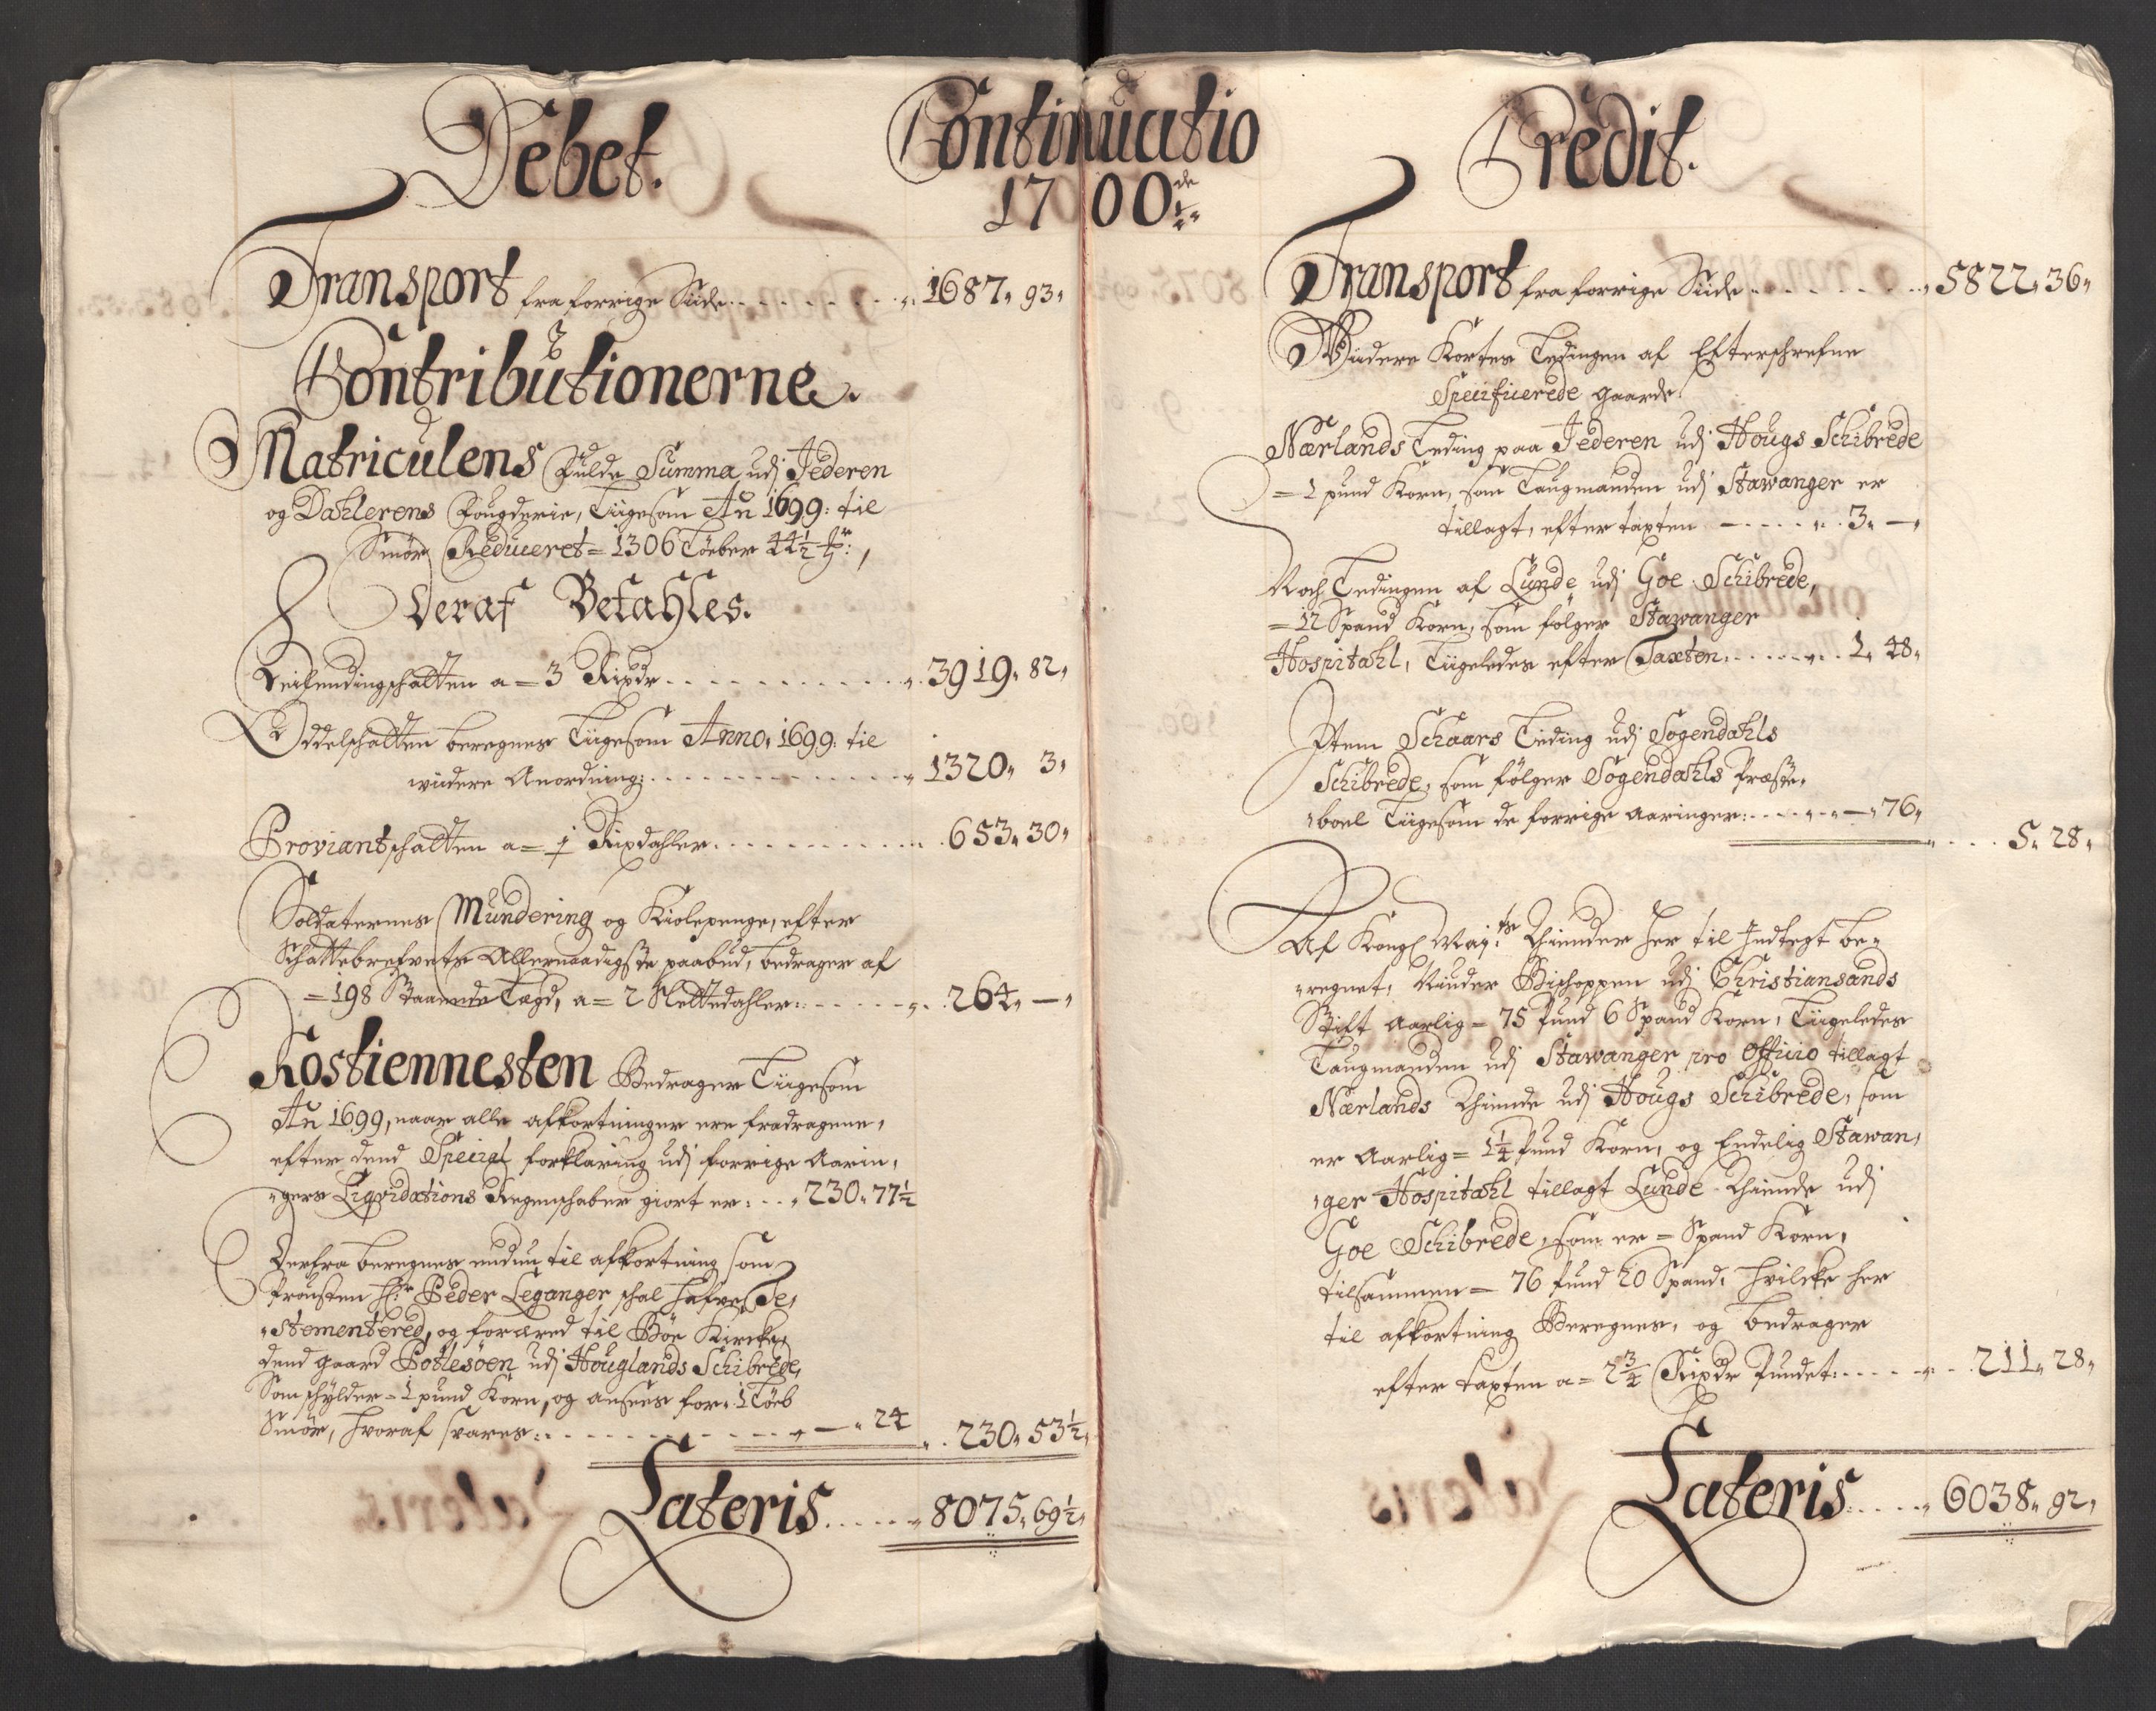 Debet.
Continuatio
1700 de
Transport fra forrige Siide . . . . . . . . 1687. 93.
Contributionerne.
Matriculens Fulde Summa udj Jederen
og Dahlerens Fougderie, Liigesom An 1699: til
Smör Reduceret = 1306 Löeber 44½
Deraf Betahles.
Leilendingschatten a = 3 Rixdr . . . . . . . . 3919. 82.
Oddelschatten beregnes Liigesom Anno, 1699: til
widere Anordning: . . . . . . . . 1320. 3.
Proviantschatten a = ½ Rixdahler . . . . . . . . 653. 30.
Soldaternes Mundering og Kiolepenge, efter
Schattebrefvets Allernaadigste paabud, bedrager af
= 198 Staaende Lægd, a = 2 Slettedahler: . . . . . . 264. —.
Rostiennesten Bedrager Liigesom
An 1699, naar alle afkortninger ere fradragene,
efter dend Special forklaring udj forrige Aarin,
,gers Liqvidations Regenschaber giort er: . . . 230. 77½
Derfra beregnes endnu til afkortning som
Prousten Hr: Peder Leganger schal hafve Te,
,stementered, og foræred til Böe Kircke,
dend gaard Botlesöen udj Houglands Schibrede,
Som schylder = 1 pund Korn, og ansees for = 1 Löeb
Smör, hvoraf svares: . . . . . . . . —. 24
. . 230. 53½.
Lateris . . . . . 8075. 69½.
Credit.
Transport fra forrige Siide . . . . . . . . 5822. 36.
Wiidere Kortes Tedingen af Efterschrefne
Specificerede gaarde:
Nærlands Teding paa Jederen udj Hougs Schibrede
= 1 pund Korn, som Laugmanden udj Stawanger er
tillagt, efter taxten — . . . . . 3. —.
Noch Tedingen af Lunde udj Goe Schibrede,
= 12 Spand Korn, som fölger Stawanger
Hospitahl, Liigeledes efter Taxten: . . . . . 1. 48.
Item Schaars Teding udj Sogendahls
Schibrede, som fölger Sogendahls Præste,
,boel Liigesom de forrige Aaringer: . . . . —. 76.
. . . . 5. 28.
Af Kongl Mayts: Thiender her til Indtegt be,
,regnet, Niuder Bischoppen udj Christiansands
Stift Aarlig = 75 Pund 6 Spand Korn, Liigeledes
Laugmanden udj Stawanger pro Officio tillagt
Nærlands Thiende udj Hougs Schibrede, som
er Aarlig = 1¼ Pund Korn, og Endelig Stawan,
,ger Hospitahl tillagt Lunde Thiende udj
Goe Schibrede, som er = Spand Korn,
tilsammen = 76 Pund 20 Spand, hvilcke her
til afkortning Beregnes, og bedrager
efter taxten a = 2¾ Rixdr Pundet: . . . . . . 211. 28.
Lateris: . . . . 6038. 92.